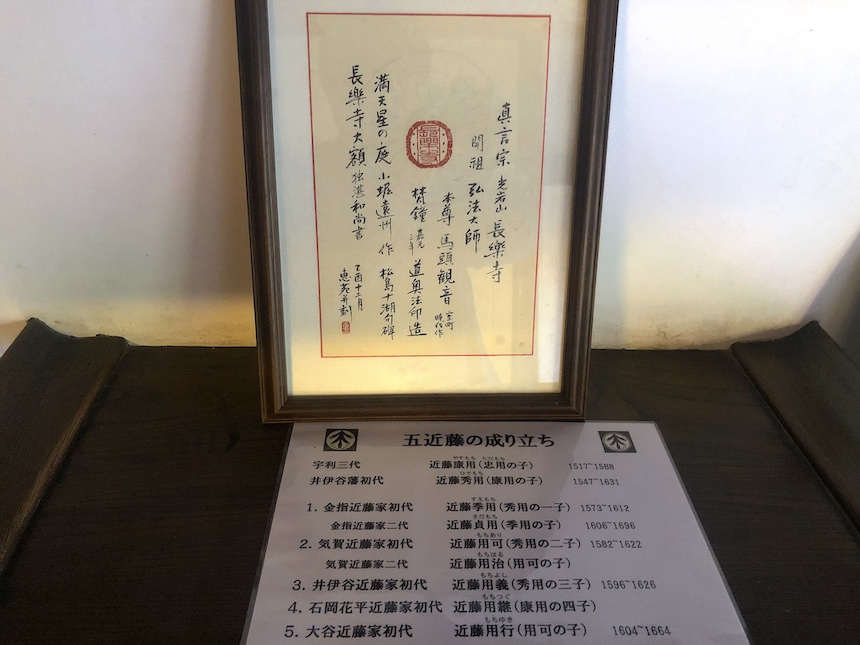 真言宗 光岩山 長樂寺
開祖 弘法大師
本尊 馬頭観音 室町時代作
梵鐘 嘉元三年 道奥法印造
長樂寺
満天星の庭 小堀遠州作 松島十湖句碑
長樂寺大額 独湛和尚書
乙酉十二月
五近藤の成り立ち
宇利三代 近藤康用(忠用の子) 1517~1588
やすもち ただもち
井伊谷藩初代 近藤秀用(康用の子) 1547~1631
ひでもち
1. 金指近藤家初代 近藤季用(秀用の一子) 1573~1612
すえもち
金指近藤家二代 近藤貞用(季用の子) 1606~1696
さだもち
2. 気賀近藤家初代 近藤用可(秀用の二子) 1582~1622
もちあり
気賀近藤家二代 近藤用治(用可の子)
もちはる
3. 井伊谷近藤家初代 近藤用義(秀用の三子) 1596~1626
もちよし
4. 石岡花平近藤家初代 近藤用継(康用の四子)
もちつぐ
5. 大谷近藤家初代 近藤用行(用可の子) 1604~1664
もちゆき